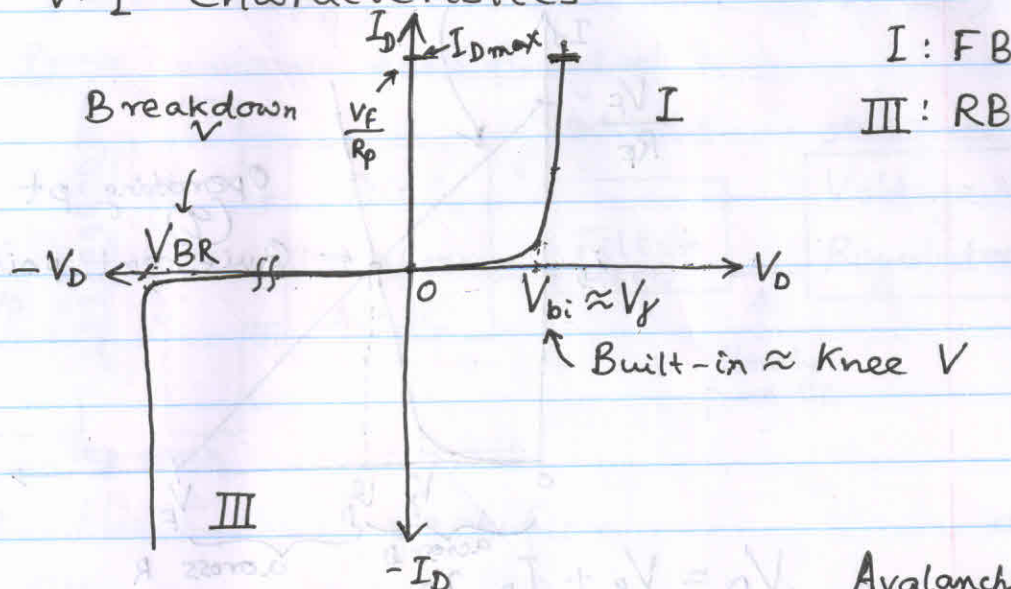 V-I Characteristics
I_D I_Dmax I : FB
Breakdown V
V_F/R_p
I
III : RB
V_BR
-V_D
0
V_D
V_bi ≈ V_γ
Built-in ≈ Knee V
III
-I_D
Avalanch